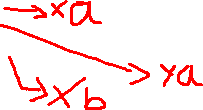 xa
xa
xb